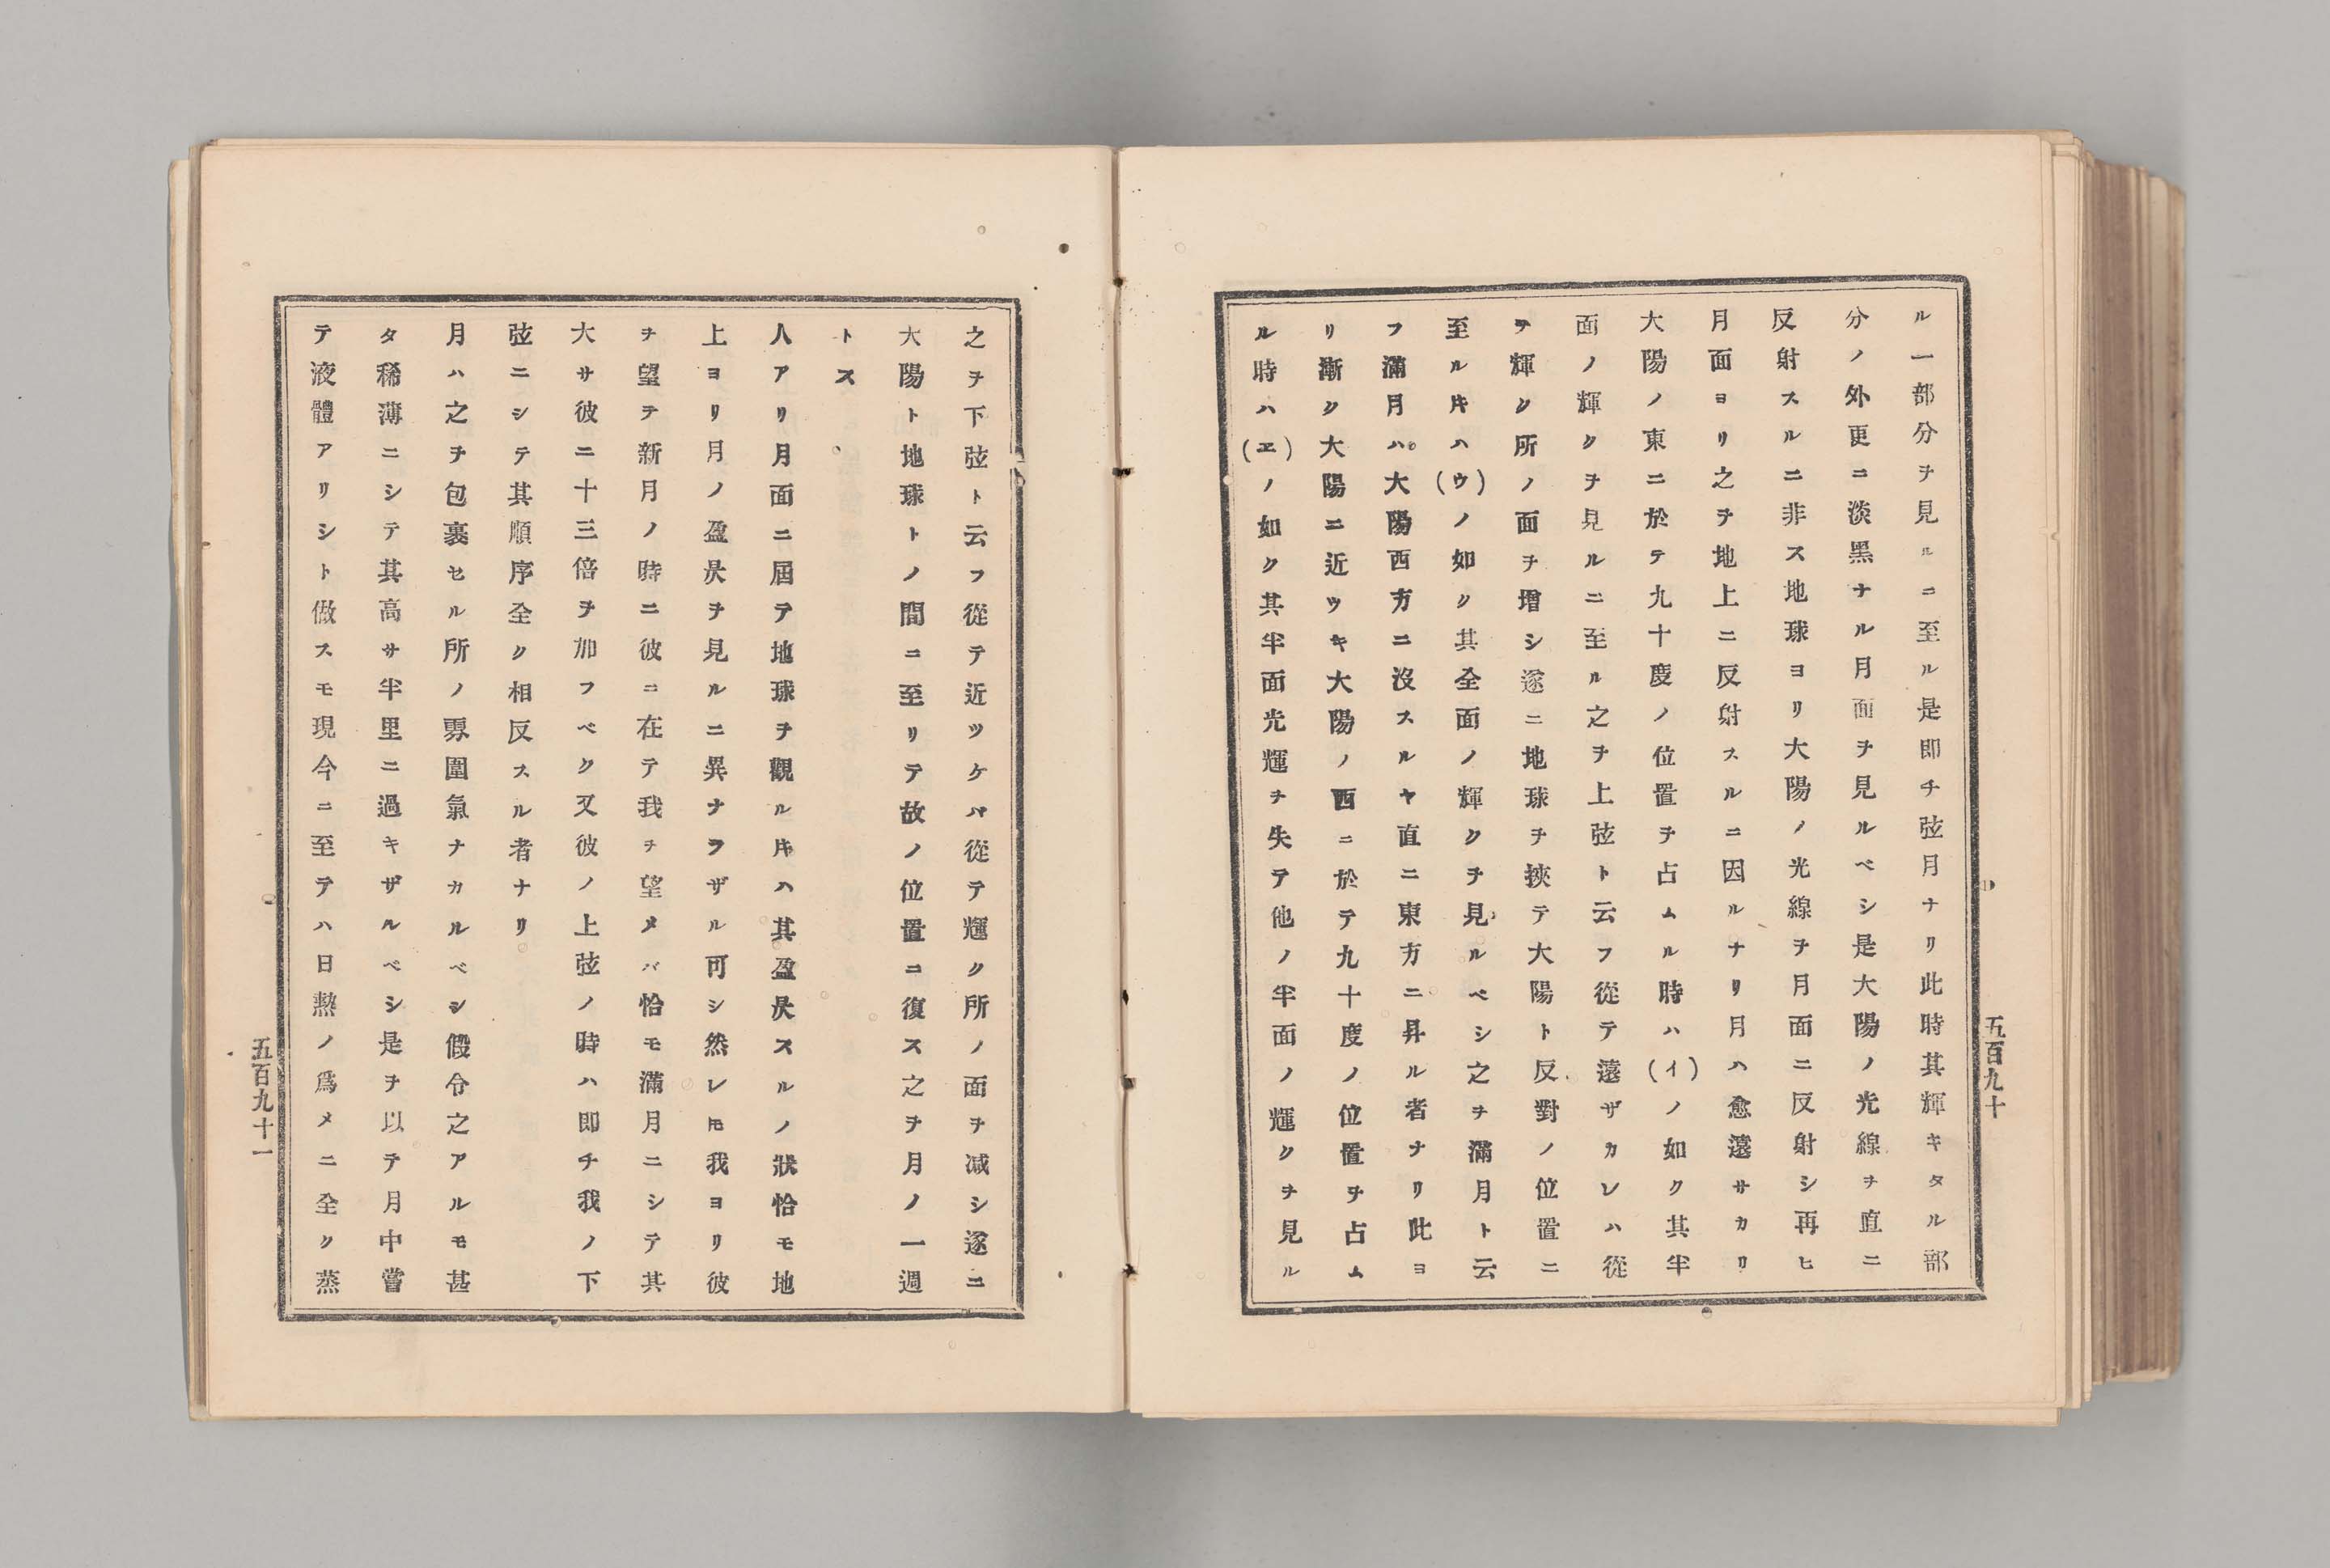 ル一部分ヲ見ルニ至ル是即チ弦月ナリ此時其輝キタル部
分ノ外更ニ淡黑ナル月面ヲ見ルベシ是大陽ノ光線ヲ直ニ
反射スルニ非ス地球ヨリ大陽ノ光線ヲ月面ニ反射シ再ヒ
月面ヨリ之ヲ地上ニ反射スルニ因ルナリ月ハ愈遠サカリ
大陽ノ東ニ於テ九十度ノ位置ヲ占ムル時ハ(イ)ノ如ク其半
面ノ輝クヲ見ルニ至ル之ヲ上弦ト云フ從テ遠ザカレハ從
テ輝ク所ノ面ヲ增シ遂ニ地球ヲ挾テ大陽ト反對ノ位置ニ
至ル𪜈ハ(ウ)ノ如ク其全面ノ輝クヲ見ルベシ之ヲ滿月ト云
フ滿月ハ大陽西方ニ沒スルヤ直ニ東方ニ昇ル者ナリ此ヨ
リ漸ク大陽ニ近ツキ大陽ノ西ニ於テ九十度ノ位置ヲ占ム
ル時ハ(ヱ)ノ如ク其半面光輝ヲ失テ他ノ半面ノ輝クヲ見ル
五百九十
之ヲ下弦ト云フ從テ近ツケバ從テ輝ク所ノ面ヲ减シ遂ニ
大陽ト地球トノ間ニ至リテ故ノ位置ニ復ス之ヲ月ノ一週
トス
人アリ月面ニ屆テ地球ヲ觀ル𪜈ハ其盈昃スルノ狀恰モ地
上ヨリ月ノ盈昃ヲ見ルニ異ナラザル可シ然レ𪜈我ヨリ彼
ヲ望テ新月ノ時ニ彼ニ在テ我ヲ望メバ恰モ滿月ニシテ其
大サ彼ニ十三倍ヲ加フベク又彼ノ上弦ノ時ハ即チ我ノ下
弦ニシテ其順序全ク相反スル者ナリ
月ハ之ヲ包裹セル所ノ雰圍氣ナカルベシ假令之アルモ甚
タ稀薄ニシテ其高サ半里ニ過キザルベシ是ヲ以テ月中嘗
テ液體アリシト做スモ現今ニ至テハ日熱ノ爲メニ全ク蒸
五百九十一